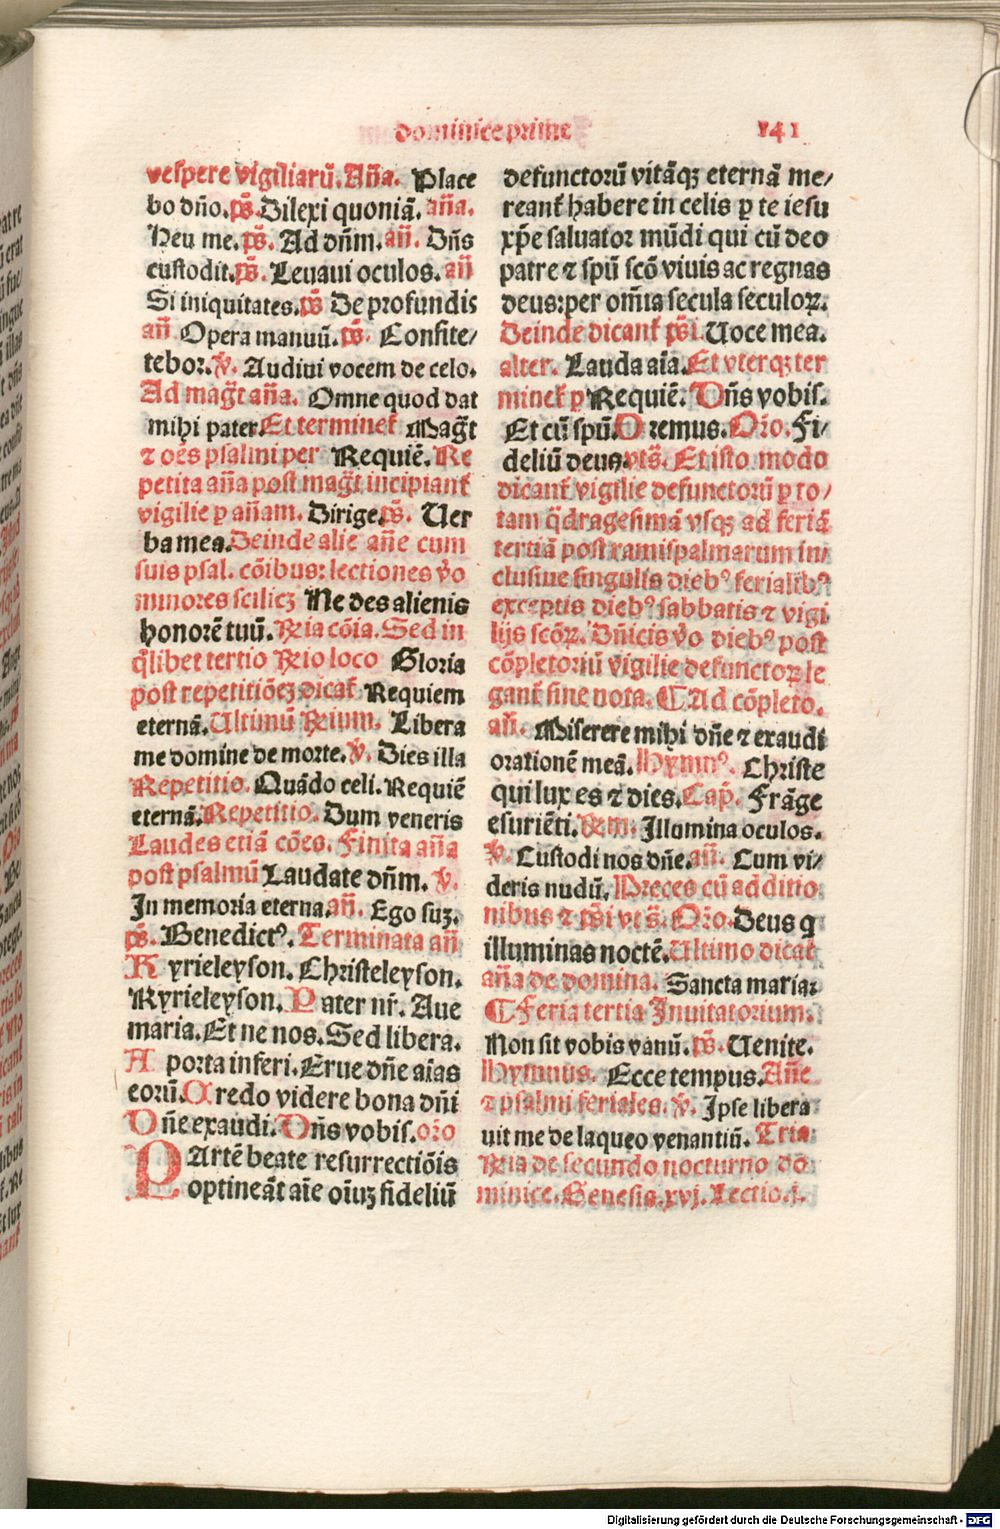 dominice prime 141
vespere vigiliarū. Añā. Place
bo dño. p̄s. Dilexi quoniā. añā.
Heu me. p̄s. Ad dñm. añ. Dñs
custodit. p̄s. Leuaui oculos. añ
Si iniquitates. p̄s De profundis
añ Opera manuū. p̄s. Confite/
tebor. v̄. Audiui vocem de celo.
Ad mag̃t aña. Omne quod dat
mihi pater. Et terminet᷑ Mag̃t
⁊ oēs psalmi per Requiē. Re
petita aña post mag̃t incipiant᷑
vigilie ꝑ añam. Dirige. p̄s. Uer
ba mea. Deinde alie añe cum
suis psal. cōibus: lectiones v̄o
minores scilicꝫ Ne des alienis
honorē tuū. Rīa cōia. Sed in
q̄libet tertio Rīo loco Gloria
post repetitiōeꝫ dicat᷑ Requiem
eternā. Ultimū Rīum. Libera
me domine de morte. v̄. Dies illa
Repetitio. Quādo celi. Requiē
eternā. Repetitio. Dum veneris
Laudes etiā cōes. Finita aña
post psalmū Laudate dñm. v̄.
In memoria eterna. añ. Ego suꝫ.
p̄s. Benedictꝰ. Terminata añ
Kyrieleyson. Christeleyson.
Kyrieleyson. Pater nr̄. Aue
maria. Et ne nos. Sed libera.
A porta inferi. Erue dñe aīas
eorū. Credo videre bona dñi
Dñe exaudi. Dñs vobis. oŕo
PArtē beate resurrectiōis
optineāt aīe oīuꝫ fideliū
defunctorū vitāqꝫ eternā me/
reant᷑ habere in celis ꝑ te iesu
xp̄e saluator mūdi qui cū deo
patre ⁊ spū scō viuis ac regnas
deus: per om̄ia secula seculoꝝ.
Deinde dicant᷑ p̄si. Uoce mea.
alter. Lauda aīa. Et vterqꝫ ter
minet᷑ ꝑ Requiē. Dñs vobis.
Et cū spū. Oremus. Oŕo. Fi/
deliū deus. vts̄. Et isto modo
dicant᷑ vigilie defunctorū ꝑ to/
tam q̄dragesimā vsqꝫ ad feriā
tertiā post ramispalmarum in/
clusiue singulis diebꝰ ferialibꝰ
exceptis diebꝰ sabbatis ⁊ vigi
lijs scōꝝ. Dñicis v̄o diebꝰ post
cōpletoriū vigilie defunctoꝝ le
gant᷑ sine nota. ¶ Ad cōpleto.
añ. Miserere mihi dñe ⁊ exaudi
orationē meā. Hymnꝰ. Christe
qui lux es ⁊ dies. Cap̄. Frāge
esuriēti. Rm̄. Illumina oculos.
v̄. Custodi nos dñe. añ. Cum vi/
deris nudū. Preces cū additio
nibus ⁊ p̄si vt s̄. Oŕo. Deus q
illuminas noctē. Ultimo dicat᷑
aña de domina. Sancta maria:
¶ Feria tertia Inuitatorium.
Non sit vobis vanū. p̄s. Uenite.
Hymnus. Ecce tempus. Añe
⁊ psalmi feriales. v̄. Ipse libera
uit me de laqueo venantiū. Tria
Rīa de secundo nocturno do
minice. Genesis. xvj. Lectio. j.
Digitalisierung gefördert durch die Deutsche Forschungsgemeinschaft - DFG